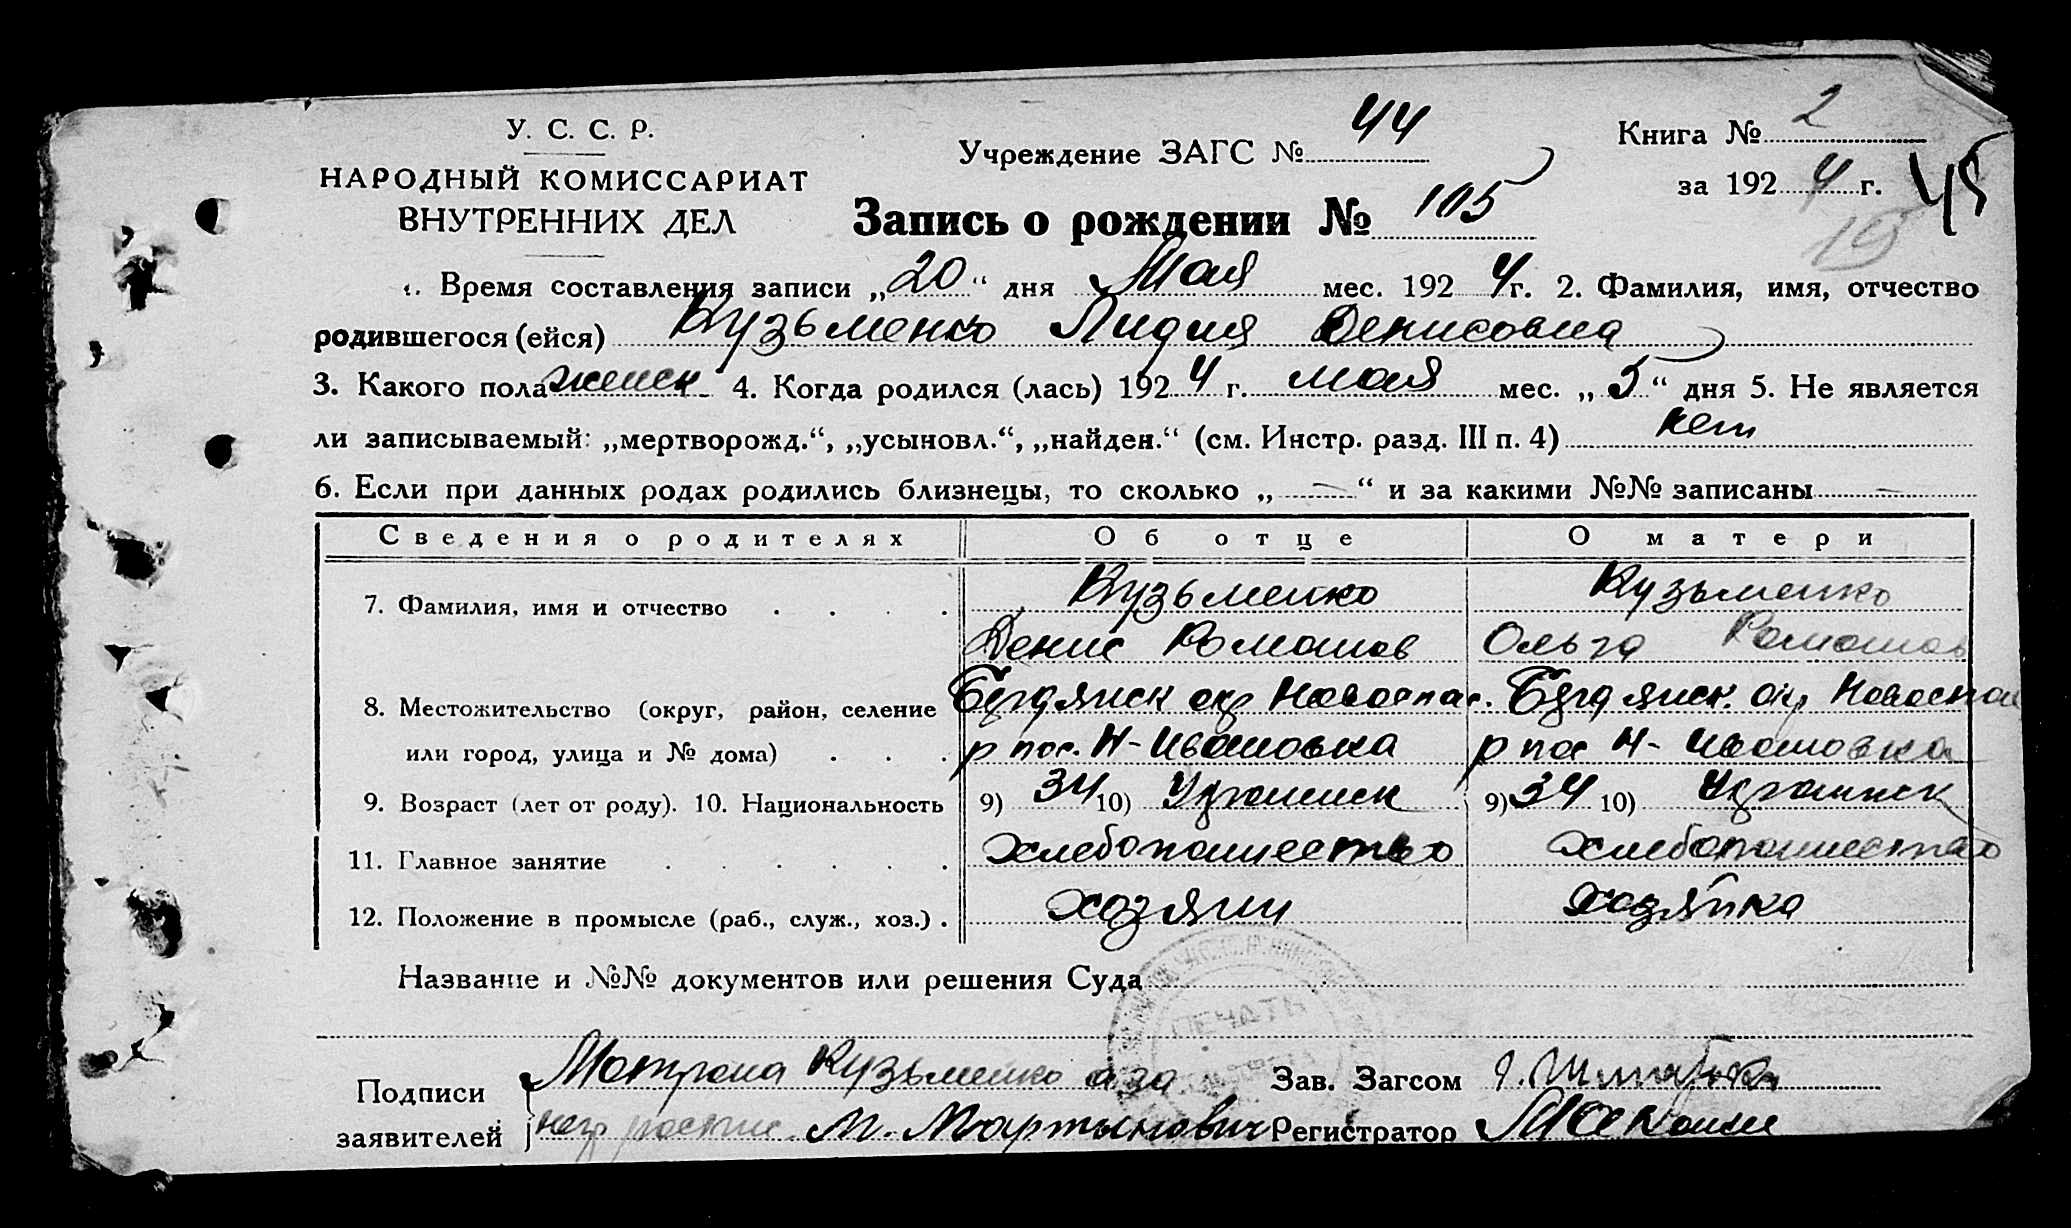 У. С. С. Р.
НАРОДНЫЙ КОМИССАРИАТ
ВНУТРЕННИХ ДЕЛ
Учреждение ЗАГС № 44
Книга № 2
за 1924 г. 45
15
Запись о рождении № 105
1. Время составления записи „20“ дня Мая мес. 1924 г. 2. Фамилия, имя, отчество
родившегося (ейся) Кузьменко Лидия Денисовна
3. Какого пола женск 4. Когда родился (лась) 1924 г. мая мес. „5“ дня 5. Не является
ли записываемый: „мертворожд.“, „усыновл.“, „найден.“ (см. Инстр. разд. III п. 4) нет
6. Если при данных родах родились близнецы, то сколько „—“ и за какими №№ записаны —
Сведения о родителях Об отце О матери
7. Фамилия, имя и отчество Кузьменко Кузьменко
Денис Романов Ольга Романов
8. Местожительство (округ, район, селение Бердянск окр Новоспас. Бердянск. окр Новоспас
или город, улица и № дома) р пос. Н-Ивановка р пос Н-Ивановка
9. Возраст (лет от роду). 10. Национальность 9) 34 10) Украинск 9) 34 10) Украинск
11. Главное занятие хлебопашество хлебопашество
12. Положение в промысле (раб., служ., хоз.) хозяин хозяйка
Название и №№ документов или решения Суда
ПЕЧАТЬ
Подписи Матрона Кузьменко а за Зав. Загсом
заявителей М. Мартынович Регистратор